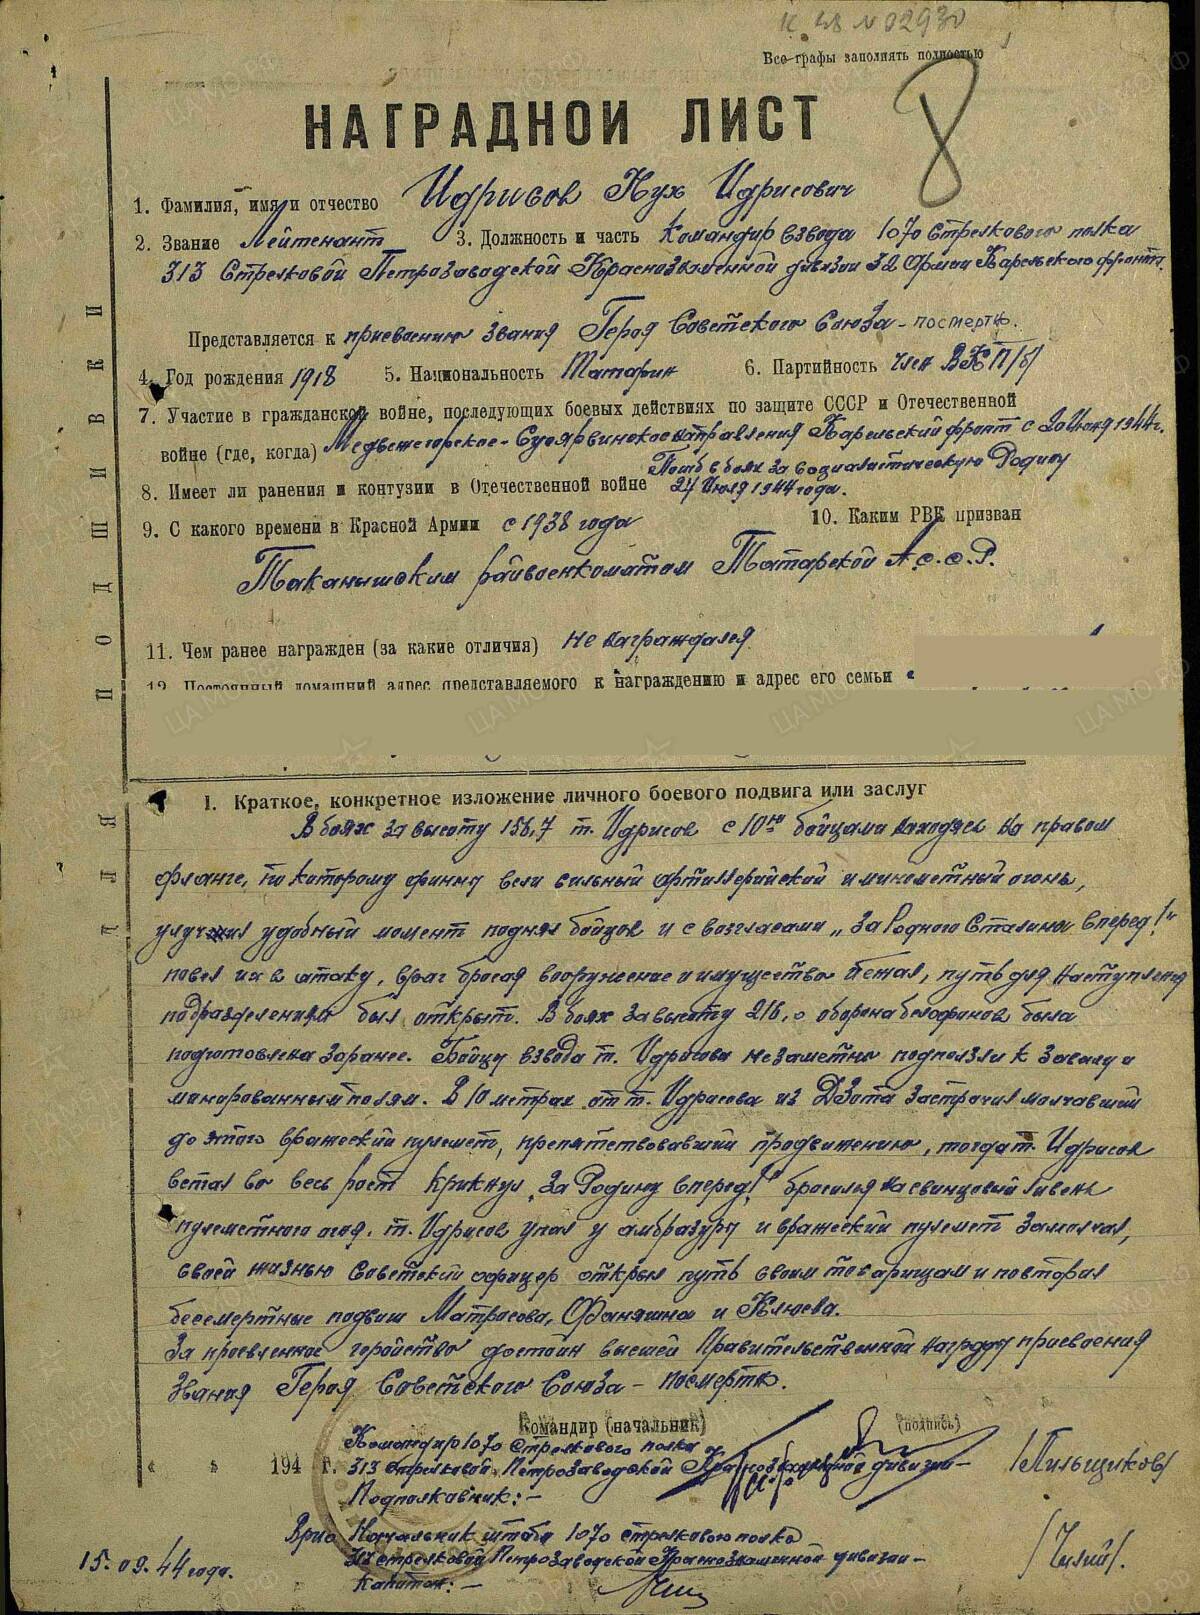 К 48 № 02930
Все графы заполнять полностью
8
НАГРАДНОЙ ЛИСТ
1. Фамилия, имя и отчество Идрисов Нух Идрисович
2. Звание Лейтенант 3. Должность и часть Командир взвода 1070 Стрелкового полка
313 Стрелковой Петрозаводской Краснознаменной дивизии 32 Армии Карельского фронта.
Представляется к присвоению звания Героя Советского Союза - посмертно.
4. Год рождения 1918 5. Национальность Татарин 6. Партийность член ВКП/б/
7. Участие в гражданской войне, последующих боевых действиях по защите СССР и Отечественной
войне (где, когда) Медвежегорское-Суоярвинское направления Карельский фронт с 20 Июня 1944г.
Погиб в боях за социалистическую Родину
8. Имеет ли ранения и контузии в Отечественной войне 24 Июля 1944 года.
9. С какого времени в Красной Армии с 1938 года 10. Каким РВК призван
Таканышским райвоенкоматом Татарской А.С.С.Р.
11. Чем ранее награжден (за какие отличия) не награждался
12. Постоянный домашний адрес представляемого к награждению и адрес его семьи
ДЛЯ ПОДШИВКИ
I. Краткое, конкретное изложение личного боевого подвига или заслуг
В боях за высоту 156,7 т. Идрисов с 10ю бойцами находясь на правом
фланге, по которому финны вели сильный артиллерийский и минометный огонь,
улучил удобный момент поднял бойцов и с возгласами „За Родного Сталина вперед!"
повел их в атаку, враг бросая вооружение и имущество бежал, путь для наступления
подразделениям был открыт. В боях за высоту 216,0 оборона белофинов была
подготовлена заранее. Бойцы взвода т. Идрисова незаметно подползли к завалу и
минированным полям. В 10 метрах от т. Идрисова из ДЗота застрочил молчавший
до этого вражеский пулемет, препятствовавший продвижению, тогда т. Идрисов
встал во весь рост крикнул „За Родину вперед!" бросился на свинцовый ливень
пулеметного огня. т. Идрисов упал у амбразуры и вражеский пулемет замолчал,
своей жизнью Советский офицер открыл путь своим товарищам и повторил
бессмертные подвиги Матросова, Фаняшина и Клюева.
За проявленное геройство достоин высшей Правительственной награды присвоения
звания Героя Советского Союза - посмертно.
Командир (начальник) (подпись)
Командир 1070 стрелкового полка
« » 194 г. 313 стрелковой Петрозаводской Краснознаменной дивизии - /Пильщиков/
Подполковник: -
Врио Начальник штаба 1070 стрелкового полка
15.09.44 года. 313 стрелковой Петрозаводской Краснознаменной дивизии -
Капитан: -